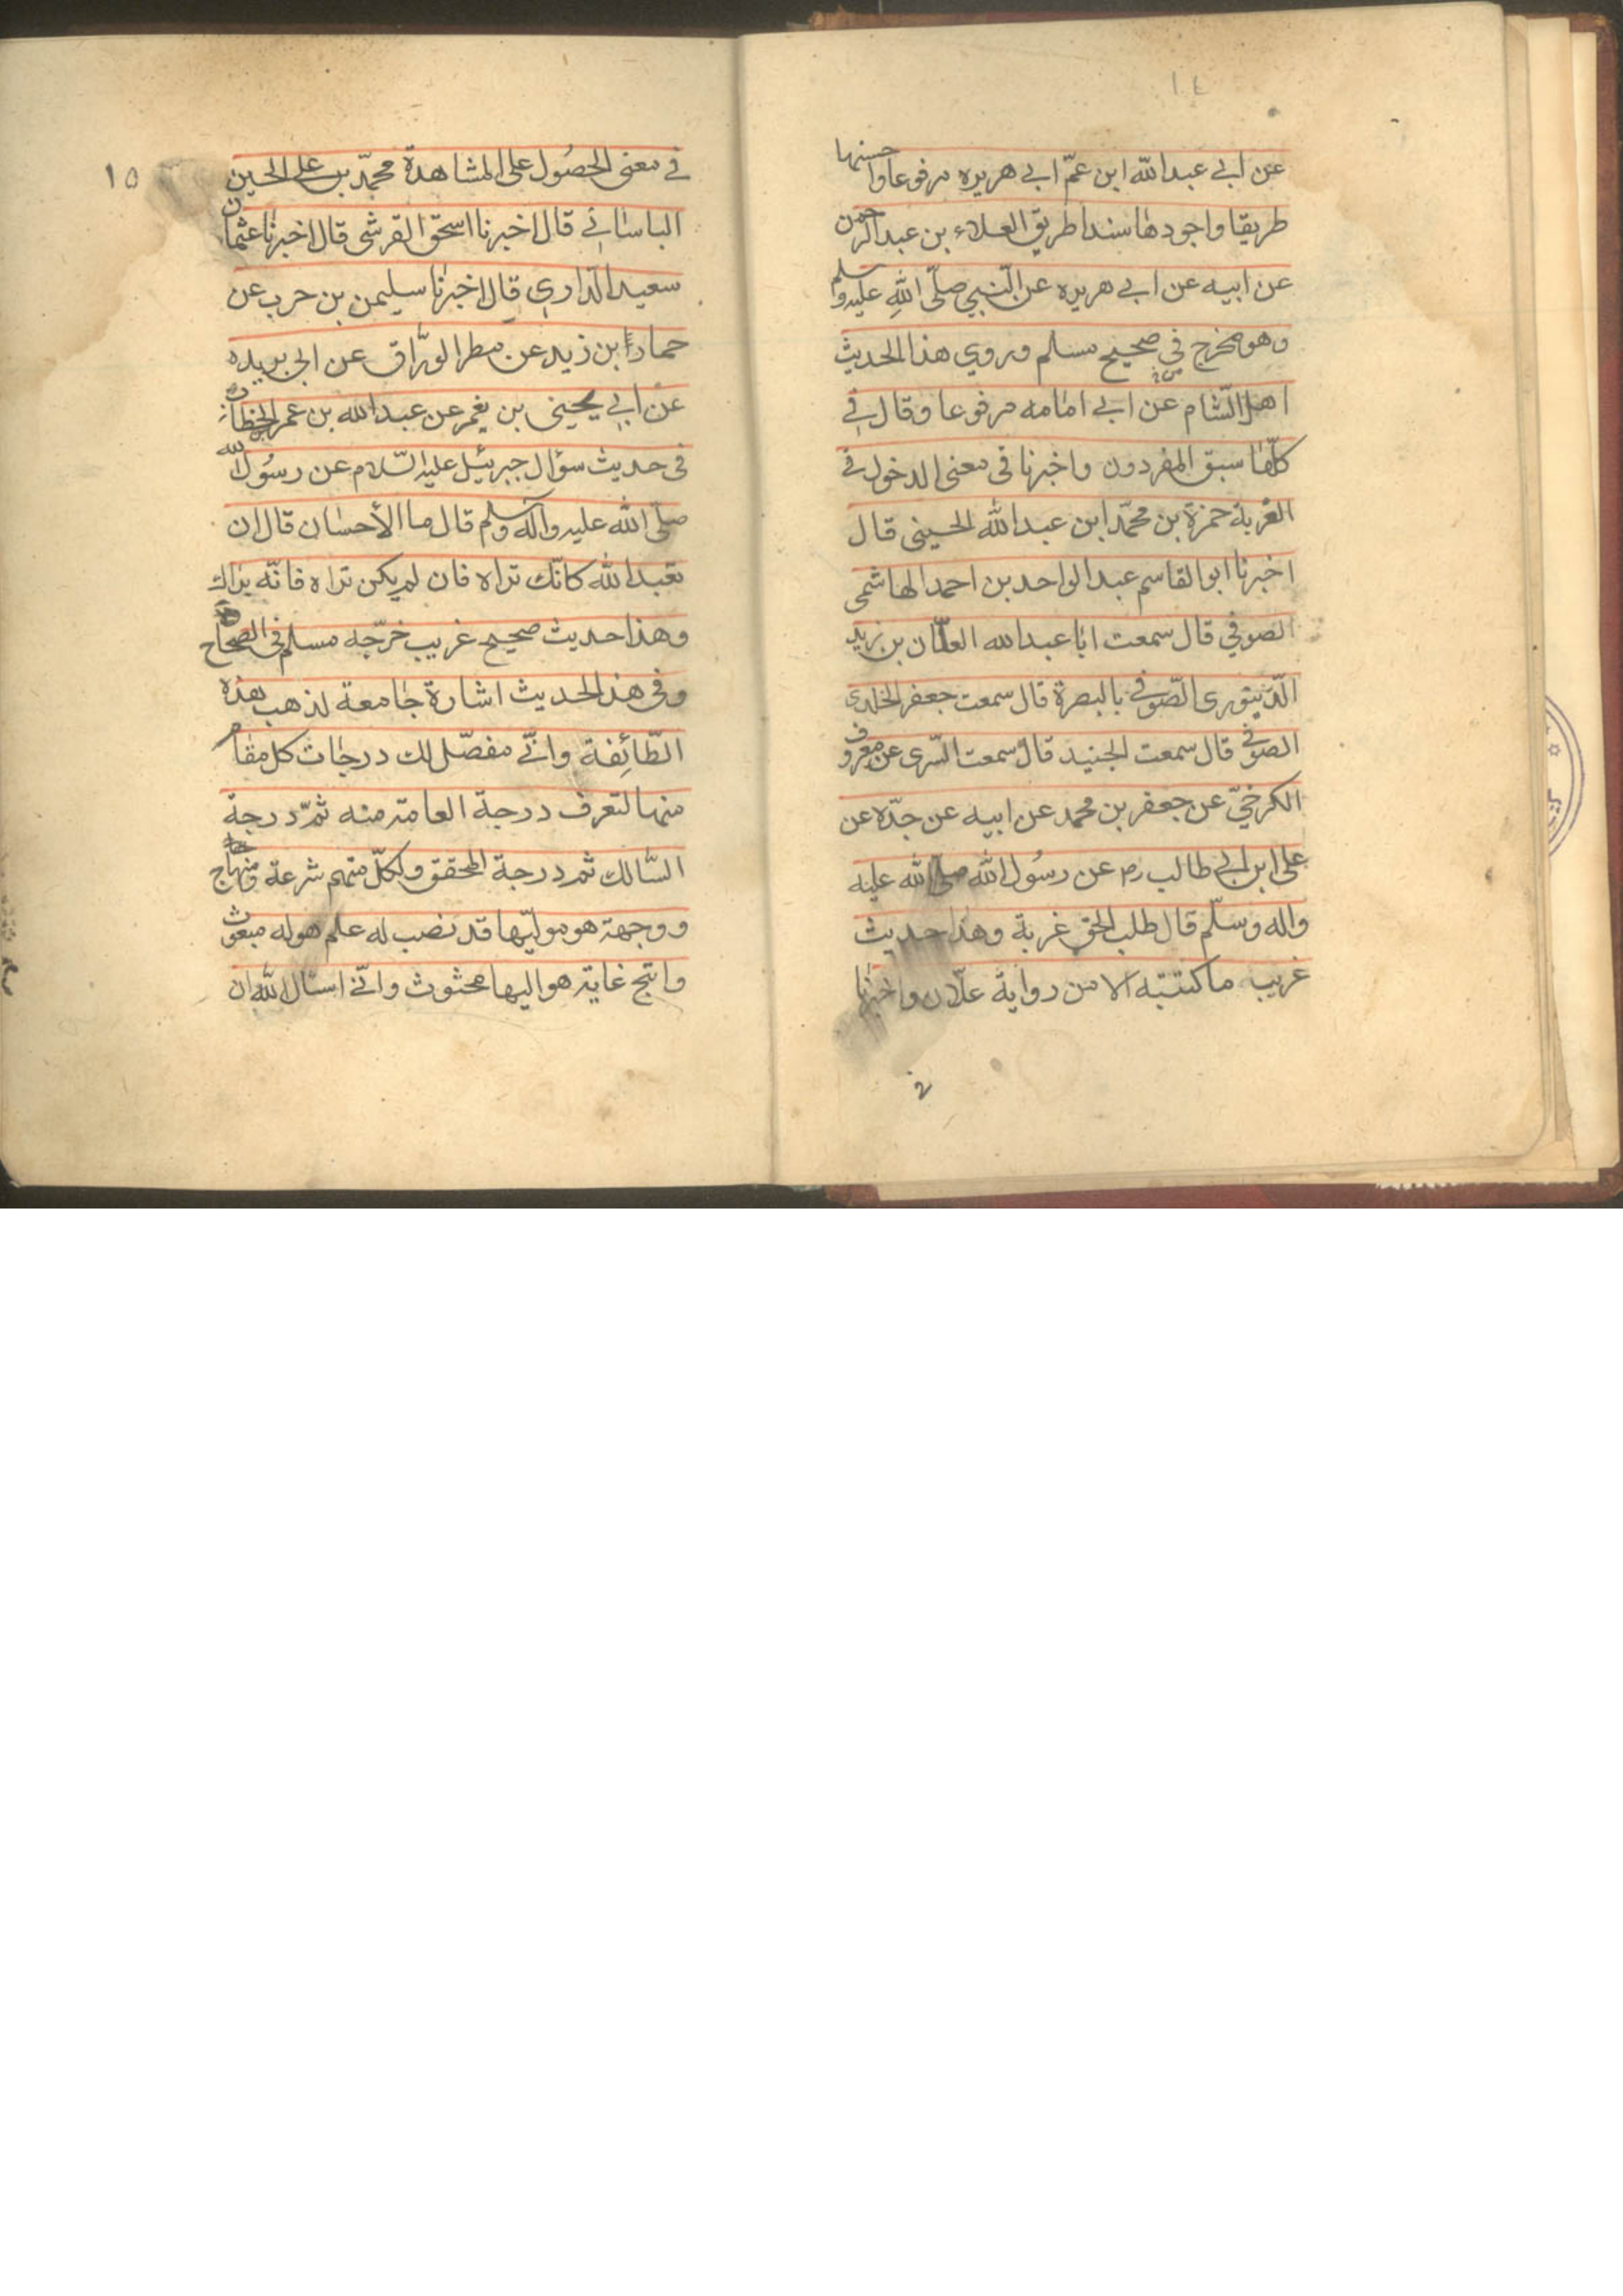 ١٤
عن ابي عبدالله ابن عمّ ابي هريره مرفوعا واحسنها
طريقا واجودها سندا طريق العلاء بن عبدالرحمن
عن ابيه عن ابي هريره عن النّبي صلّى الله عليه وسلم
وهو مخرج في صحيح مسلم وروي هذا الحديث
اهل الشّام عن ابي امامه مرفوعا وقال في
كلّها سبق المفردون واخبرنا في معنى الدخول في
الغربة حمزة بن محمّد ابن عبدالله الحسيني قال
اخبرنا ابوالقاسم عبدالواحد بن احمد الهاشمى
الصوفي قال سمعت ابا عبدالله العلّان بن زيد
الدّينورى الصّوفي بالبصرة قال سمعت جعفر الخلدى
الصوفي قال سمعت الجنيد قال سمعت السّرى عن معروف
الكرخيّ عن جعفر بن محمد عن ابيه عن جدّه عن
على ابن ابي طالب رم عن رسُول الله صلّى الله عليه
واله وسلّم قال طلب الحق غربة وهذا حديث
غريب ما كتبته الا من رواية علّان واخبرنا
في
١٥
في معنى الحصُول على المشاهدة محمّد بن على الحسين
الباساني قال اخبرنا اسحق القرشى قال اخبرنا عثمان
سعيد الدّاري قال اخبرنا سليمن بن حرب عن
حماد ابن زيد عن مطر الورّاق عن ابى بريده
عن ابي يحيى بن يعمر عن عبدالله بن عمر الخطاب
فى حديث سؤال جبرئيل عليه السّلام عن رسُول الله
صلّى الله عليه واله وسلم قال ما الأحسان قال ان
تعبد الله كانّك تراه فان لم يكن تراه فانّه يراك
وهذا حديث صحيح غريب خرّجه مسلم فى الصحاح
وفى هذا الحديث اشارة جامعة لذهب هذه
الطّائِفة وانّي مفصّل لك درجات كل مقام
منها لتعرف درجة العامة منه ثمّ درجة
السّالك ثم درجة المحقق ولكلّ منهم شرعة ومنهاج
ووجهة هو مولّيها قد نصب له علم هو له مبعوث
واتيح غاية هو اليها محثوث وانّي اسئال الله ان